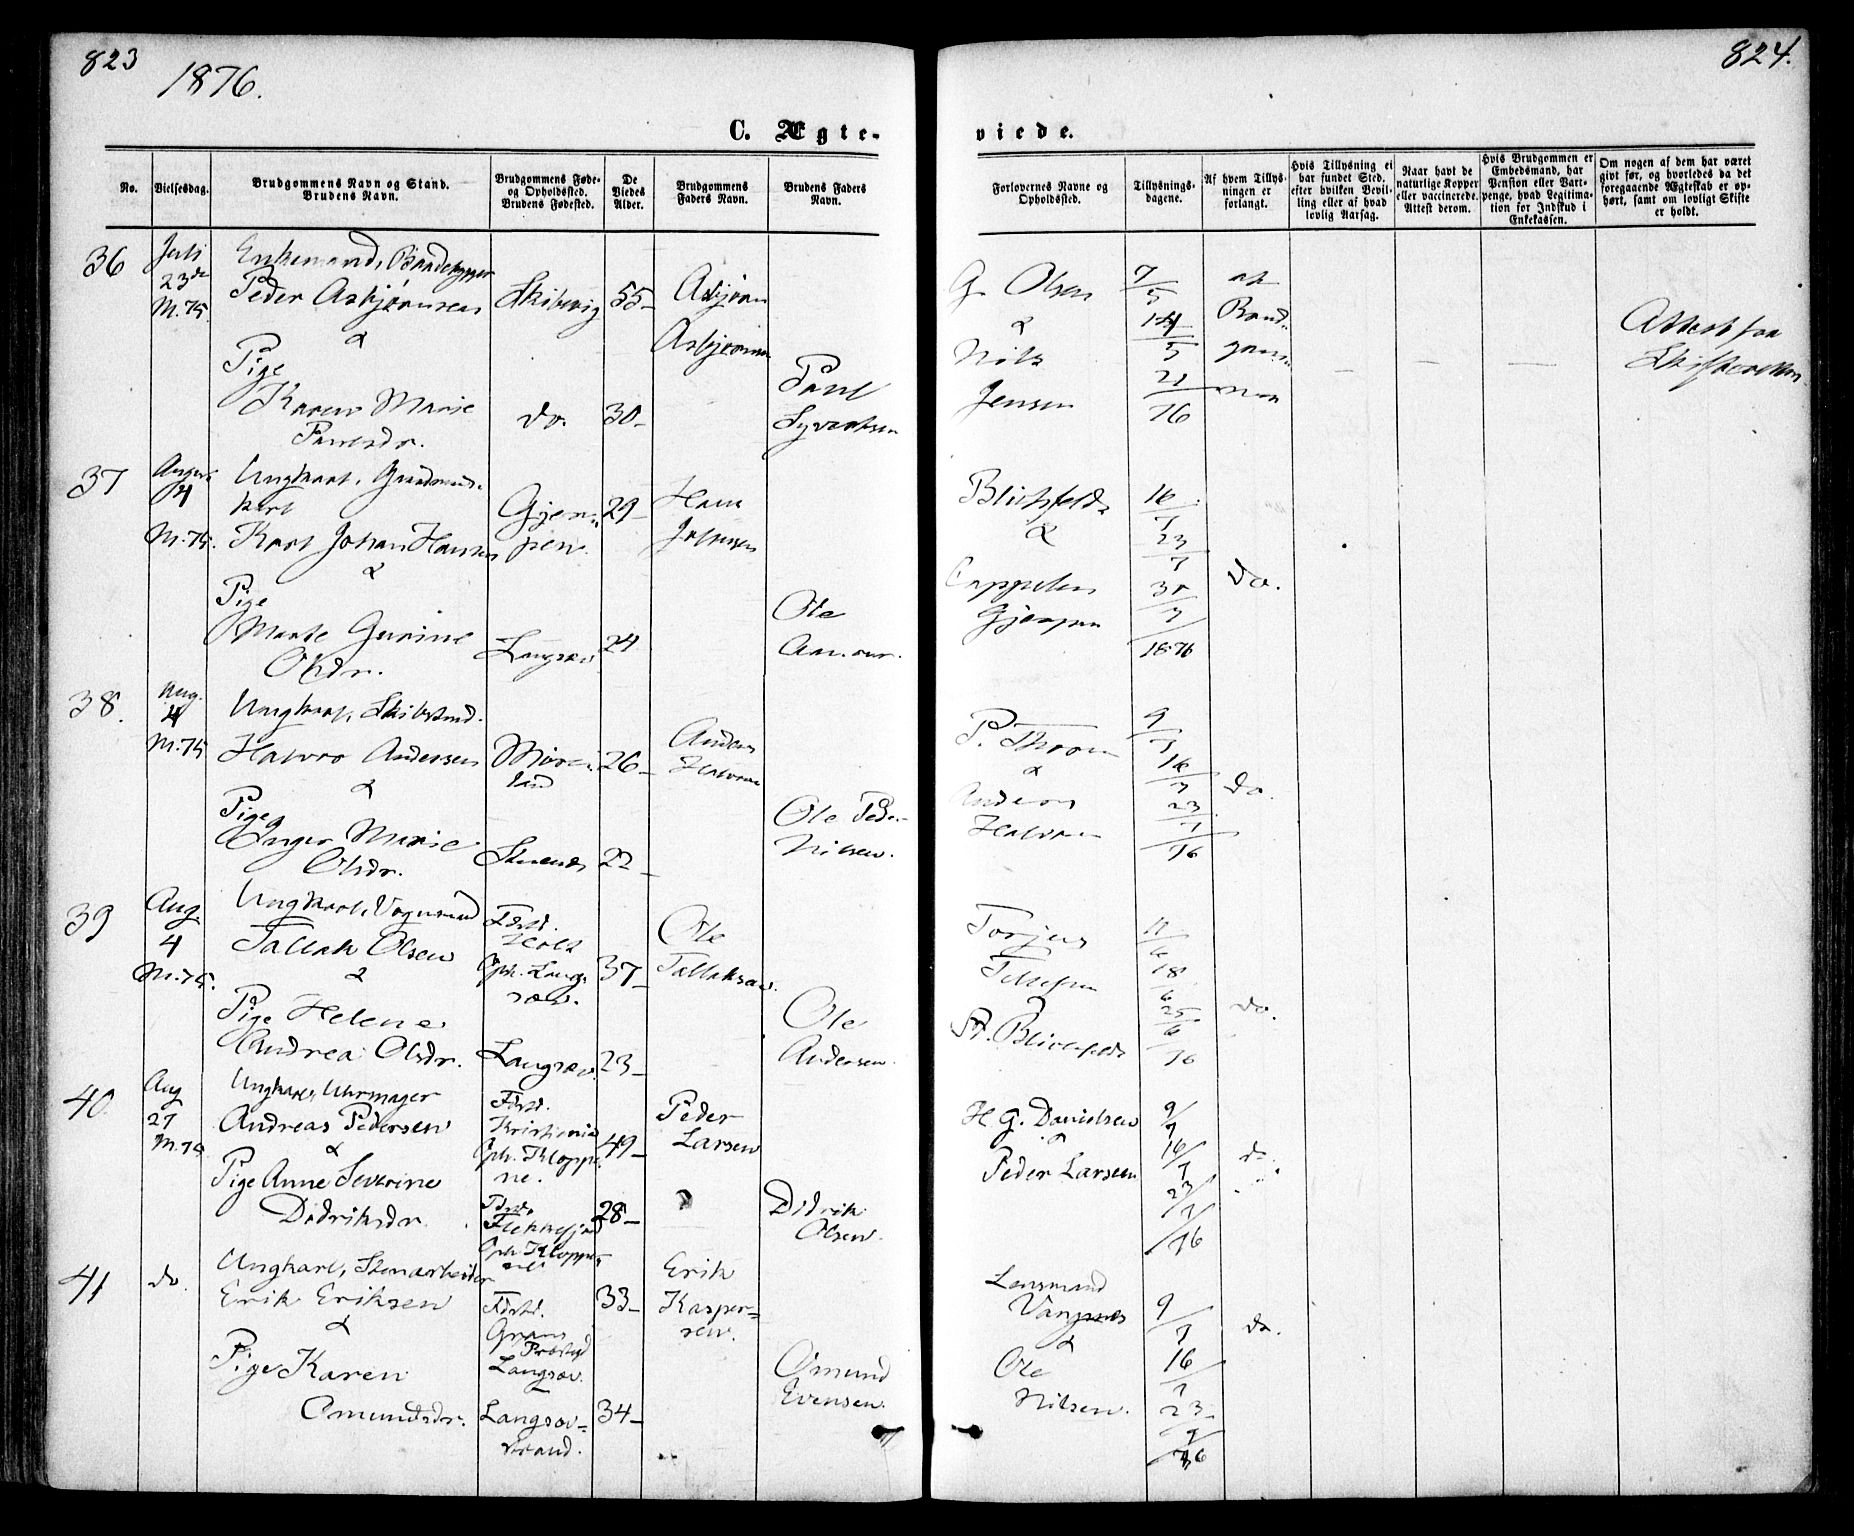 823
1876.
824.
C. Ægte-
viede.
No.
Vielsesdag.
Brudgommens Navn og Stand.
Brudens Navn.
Brudgommens Føde-
og Opholdssted.
Brudens Fødested.
De
Viedes
Alder.
Brudgommens
Faders Navn.
Brudens Faders
Navn.
Forlovernes Navne og
Opholdssted.
Tillysnings-
dagene.
Af hvem Tillys-
ningen er
forlangt.
Hvis Tillysning ei
har fundet Sted,
efter hvilken Bevil-
ling eller af hvad
lovlig Aarsag.
Naar havt de
naturlige Kopper
eller vaccinerede.
Attest derom.
Hvis Brudgommen er
Embedsmand, har
Pension eller Vart-
penge, hvad Legitima-
tion for Indskud i
Enkekassen.
Om nogen af dem har været
givt før, og hvorledes da det
foregaaende Ægteskab er op-
hørt, samt om lovligt Skifte
er holdt.
36
Juli
23de
M. 75.
Enkemand,
Peder Asbjørnsen
&
Pige
Karen Marie
Paulsdr.
do.
55
30
Asbjørn
Paul
Syvertsen
G. Olsen
&
Nils
Jensen
7/5
14/5
21
76
af
Brud-
gom-
men
Attest fra
37
August
4
M. 75.
Ungkarl,
Karl Johan Hansen
&
Pige
Marte Gurine
Olsdr.
Gjer-
pen.
Langsæv
29
24
Hans
Ole
Blichfeldt
&
Cappelen
Gjerpen
16/7
23/7
30/7
1876
do.
38.
Aug.
4
M. 75
Ungkarl,
Halvor Andersen
&
Pige
Inger Marie
Olsdr.
26
22
Anders
Ole Peder
Nilsen.
P. Thrane
&
Anders
Halvorsen
9/7
16/7
23/7
76
do.
39
Aug.
4
M. 75.
Ungkarl,
Tallak Olsen
&
Pige Helene
Andrea Olsdr.
Fdsd.
Holt
Oph. Lang-
sæv.
Langsæv.
37
23
Ole
Tallaksen.
Ole
Andersen.
Torjus
Tellefsen
11/6
18/6
25/6
76
do.
40
Aug
27
M. 75
Ungkarl, Uhrmager
Andreas Pedersen
&
Pige Anne Severine
Didriksdr.
Fdsd.
Kristiania
Oph. Kloppe-
ne.
Fdsd.
Flekkefjord
Oph. Kloppe-
ne
49
28
Peder
Larsen
Didrik
Olsen.
H. G. Danielsen
&
Peder Larsen
9/7
16/7
23/7
76
do.
41
do.
Ungkarl, Stenarbeider
Erik Eriksen
&
Pige Karen
Omundsdr.
Fdsd.
Grans
Prstgd
Langsæv.
Langsæv-
strand.
33
34
Erik
Kasper-
sen.
Omund
Evensen.
Lensmand
Vangsnes
&
Ole
Nilsen.
9/7
16/7
23/7
76
do.